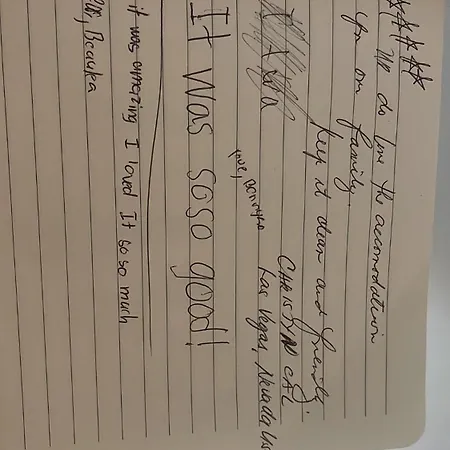 We do love the accomodation
You are family.
Keep it clean and friendly.
CAL
Las Vegas, Nevada
It Was soso good!
it was amazing I loved It so so much